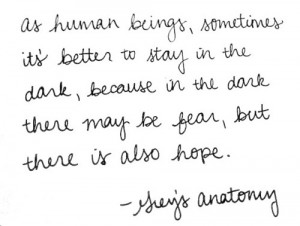 as human beings, sometimes
it's better to stay in the
dark, because in the dark
there may be fear, but
there is also hope.
- grey's anatomy